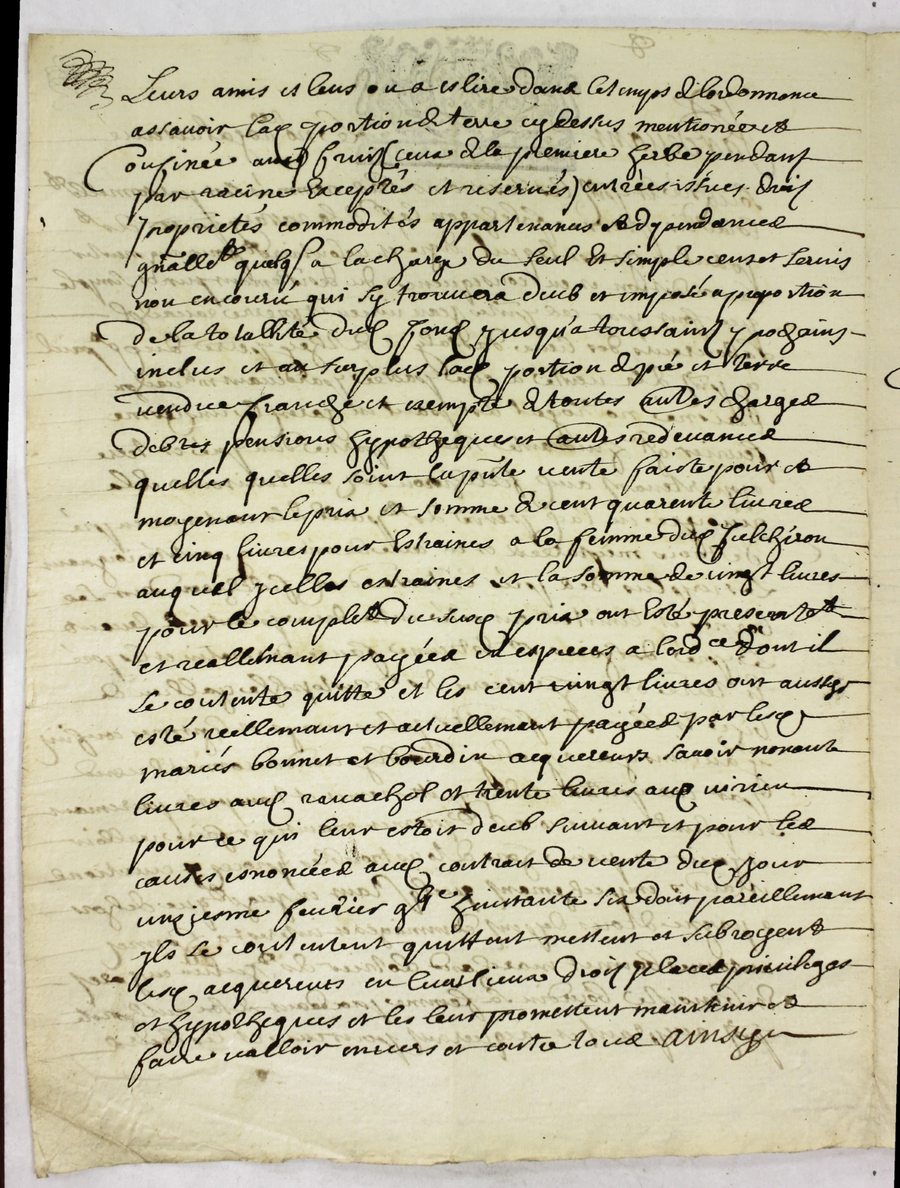 Leurs amis et leus ou a eslire dans le temps de lordonnance
assavoir lad portion de terre cy dessus mentionée et
Confinée avec fruis (ceux de la premiere herbe pendant
par racine Exceptés et reservés) entrées issües drois
proprietés commodités appartenances et dependances
gnallemt quelqs a la charge du seul Et simple cens et servis
non encouru qui sy trouvera deub et imposé a proportion
de la totallité dud fond jusqu'a toussaint prochains
inclus et au surplus lad portion de pré et terre
vendue franche et exempte de toutes autres charges
debtes pensions hypotheques et autres redevances
quelles quelles soint la pnte vente faicte pour et
moyenant le prix et somme de cent quarente livres
et cinq livres pour Estraines a la femme dud fulchiron
auquel ycelles estraines et la somme de vingt livres
pour le complet du susd prix ont Esté presentemt
et reallemant payées en especes a lord ce dont il
se contente quitte et les cent vingt livres ont aussy
esté reellemant et actuellemant payées par lesd
mariés bonnet et bourdin acquereurs savoir nonante
livres aud ravachol et trente livres aud virieu
pour ce qui leur estoit deub suivant et pour les
causes esnoncées aud contrait de vente dud jour
unziesme fevrier gbc huictante six dont pareillemant
yls se contentent quittent mettent et subrogent
lesd acquereurs en leur lieux drois places privileges
et hypotheques et les leur promettent maintenir et
faire valloir envers et contre tous ainsy